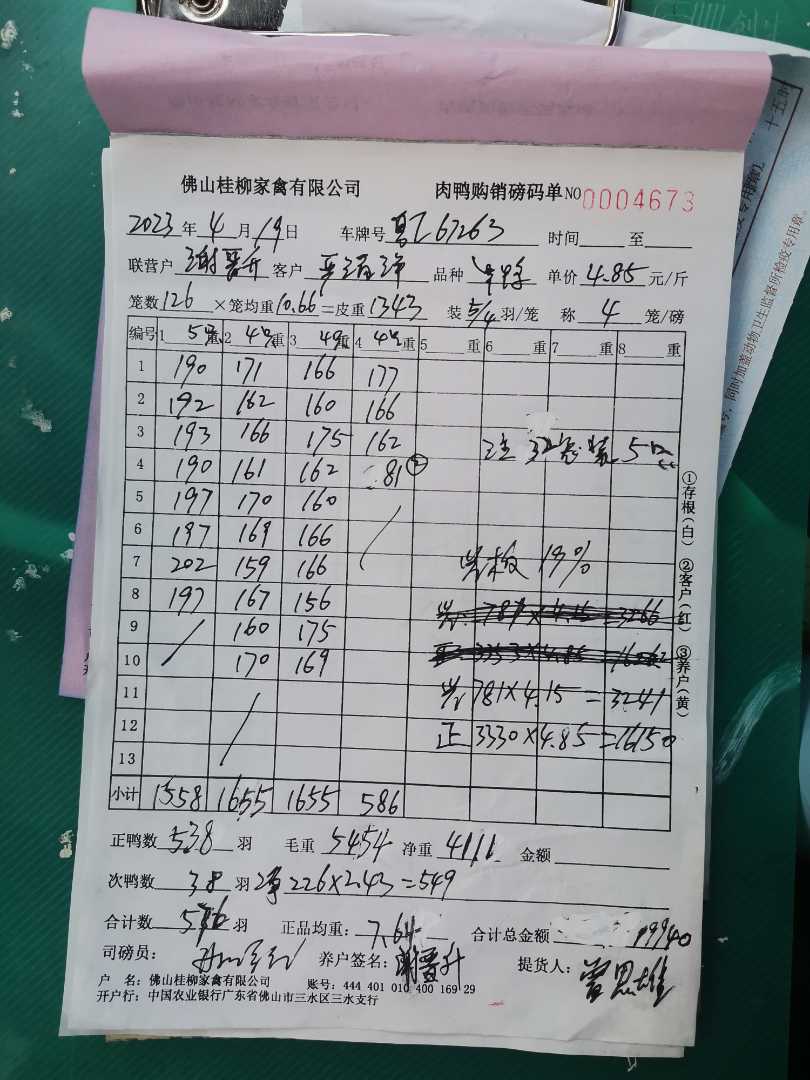 佛山桂柳家禽有限公司 肉鸭购销磅码单 NO 0004673
2023年4月19日 车牌号 67263 时间 至
联营户 谢晋升 客户 品种 单价 4.85 元/斤
笼数 126 ×笼均重 10.66 =皮重 1343 装 5/4 羽/笼 称 4 笼/磅
编号 1 5只重 2 4只重 3 4只重 4 4只重 5 重 6 重 7 重 8 重
1 190 171 166 177
2 192 162 160 166
3 193 166 175 162 注 32笼装5只
4 190 161 162 81 ②
5 197 170 160
6 197 169 166
7 202 159 166 19%
8 197 167 156
9 160 175
10 170 169
11 781×4.15=3241
12 正 3330×4.85=16150
13
小计 1558 1655 1655 586
正鸭数 538 羽 毛重 5454 净重 4111 金额
次鸭数 38 羽 226×2.43=549
合计数 576 羽 正品均重: 7.64 合计总金额 19940
司磅员: 养户签名: 谢晋升 提货人: 曾思雄
户 名: 佛山桂柳家禽有限公司 账号: 444 401 010 400 169 29
开户行: 中国农业银行广东省佛山市三水区三水支行
①存根(白) ②客户(红) ③养户(黄)
十五时
同时加盖动物卫生监督所检疫专用章。